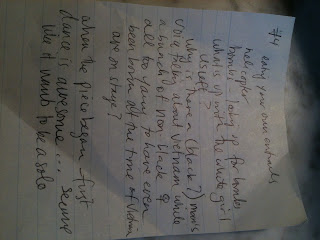 #4 eating your own entrails
helicopter
up for bombs
what is up with the white girl
duet?
why is there a (black?) man's
voice talking about Vietnam while
a bunch of non-black &
all too young to have even
been born at the time of Vietnam
are on stage?
when the piece began first
dance is awesome... seems
like it wants to be a solo